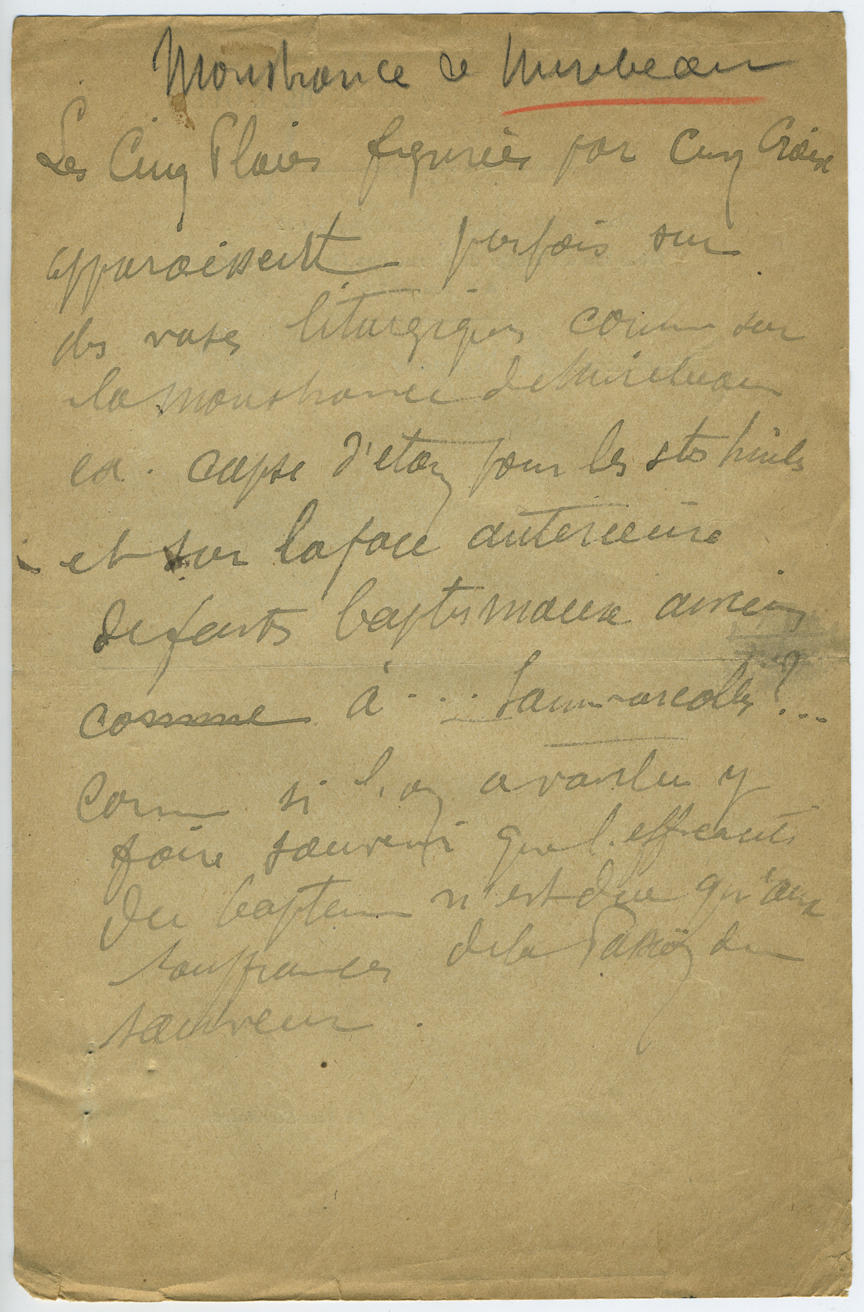 Monstrance de Mirebeau
Les Cinq Plaies figurées par cinq Croix
apparaissent parfois sur
des vases liturgiques comme sur
la monstrance de Mirebeau
ex. capse d'étain pour les stes huiles
et sur la face antérieure
de fonts baptismaux anciens
comme à ...
comme si l'on a voulu y
faire souvenir que l'efficacité
du baptême n'est due qu'aux
souffrances de la Passion du
sauveur.